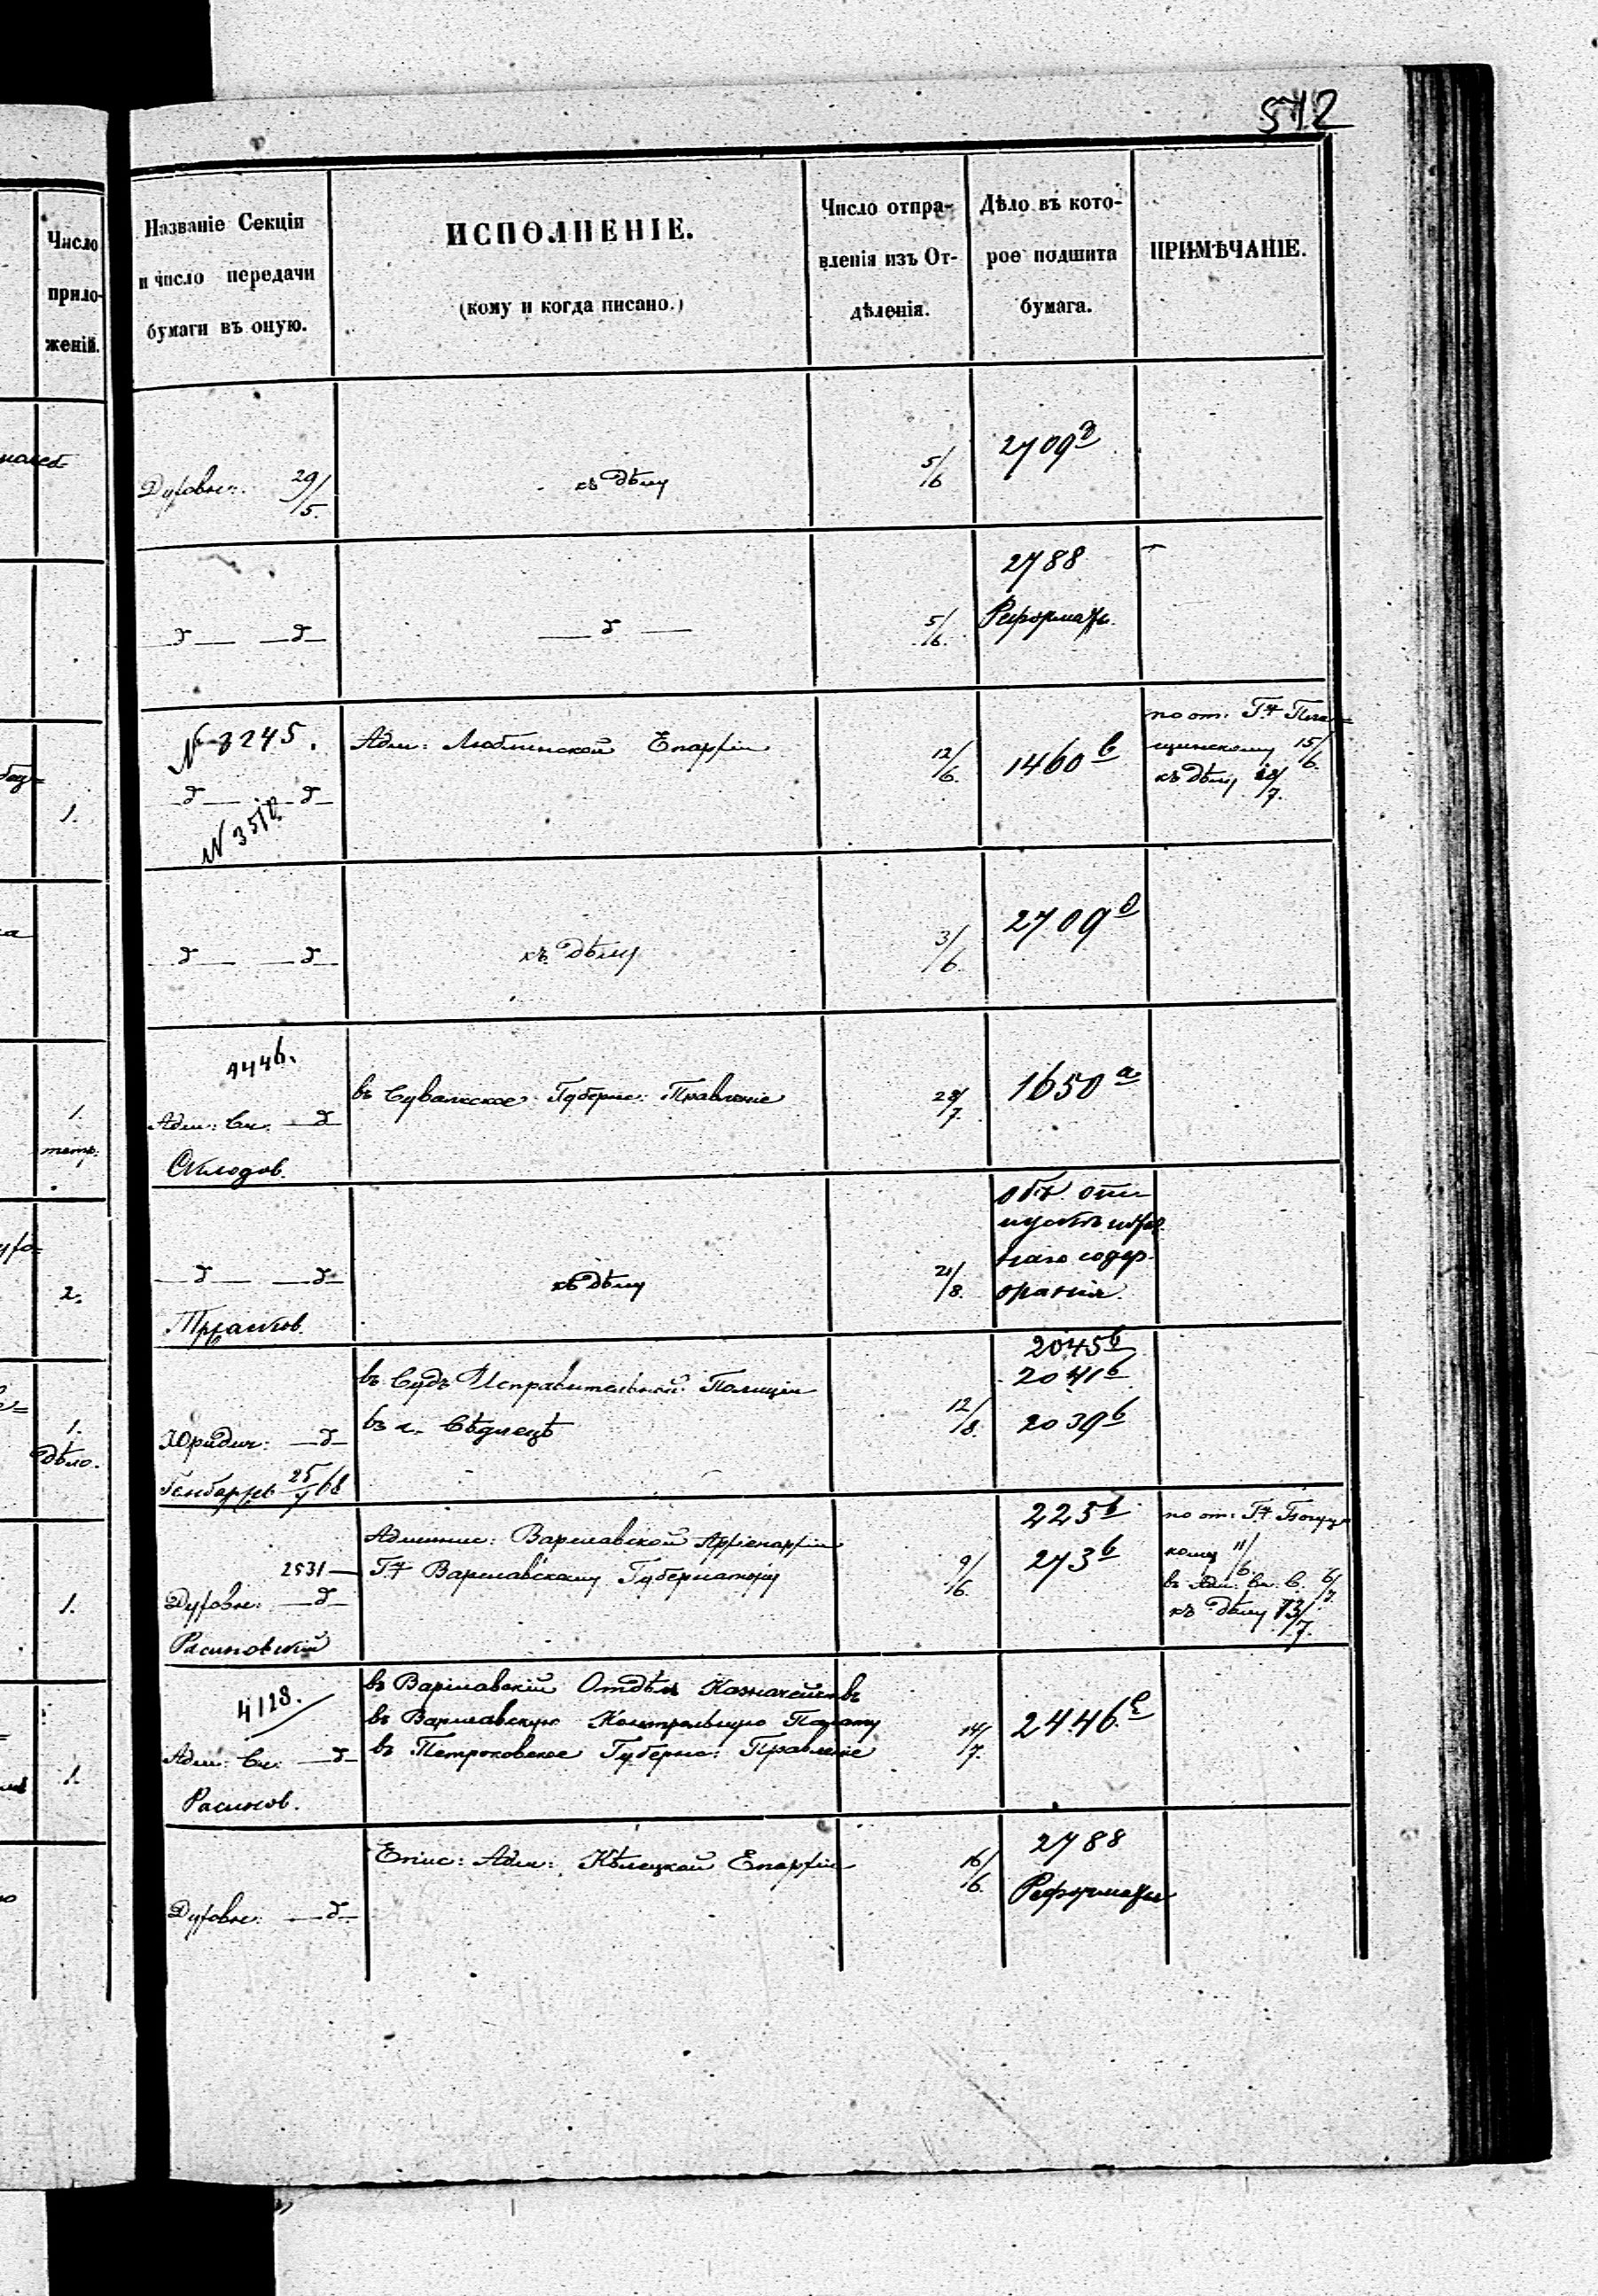 512
Число
прило-
женій.
Названіе Секціи
и число передачи
бумаги въ оную.
ИСПОЛНЕНІЕ.
(кому и когда писано.)
Число отпра-
вленія изъ От-
дѣленія.
Дѣло въ кото-
рое подшита
бумага.
ПРИМѢЧАНІЕ.
Духовн: 29/5.
къ дѣлу
5/6
2709
5/6.
2788
Реформаты.
№ 3245.
Адм: Люблинской Епархіи
12/6.
1460 в
по от: Гну
щинскому 15/6.
къ дѣлу 7.
къ дѣлу
3/6.
2709
1.
4446.
Адм: Ск.
Склодов.
въ Сувалкское Губерн: Правленіе
7.
1650 а
1.
тетр.
къ дѣлу
21/8.
объ отп
наго содер-
жанія.
2.
Юридич:
25/7 68
въ Судъ Исправительной Полиціи
въ г. Сѣдлецѣ
12/8.
2045 б
2041 б
2039 б
1.
дѣло.
2531 —
Духовн:
Расиновскій
Админис: Варшавской Архіепархіи
Гну Варшавскому Губернатору
9/6.
225 б
273 б
по от: Гну
кому 11/6.
въ Адм: Ск. С. 6/7.
къ дѣлу 13/7.
1.
4128.
Адм: Ск:
Расинов.
въ Варшавскій Отдѣлъ Казначействъ
въ Варшавскую Контрольную Палату
въ Петроковское Губерн: Правленіе
14/7.
2446
1.
Духовн:
Епис: Адм: Кѣлецкой Епархіи
16/6.
2788
Реформаты